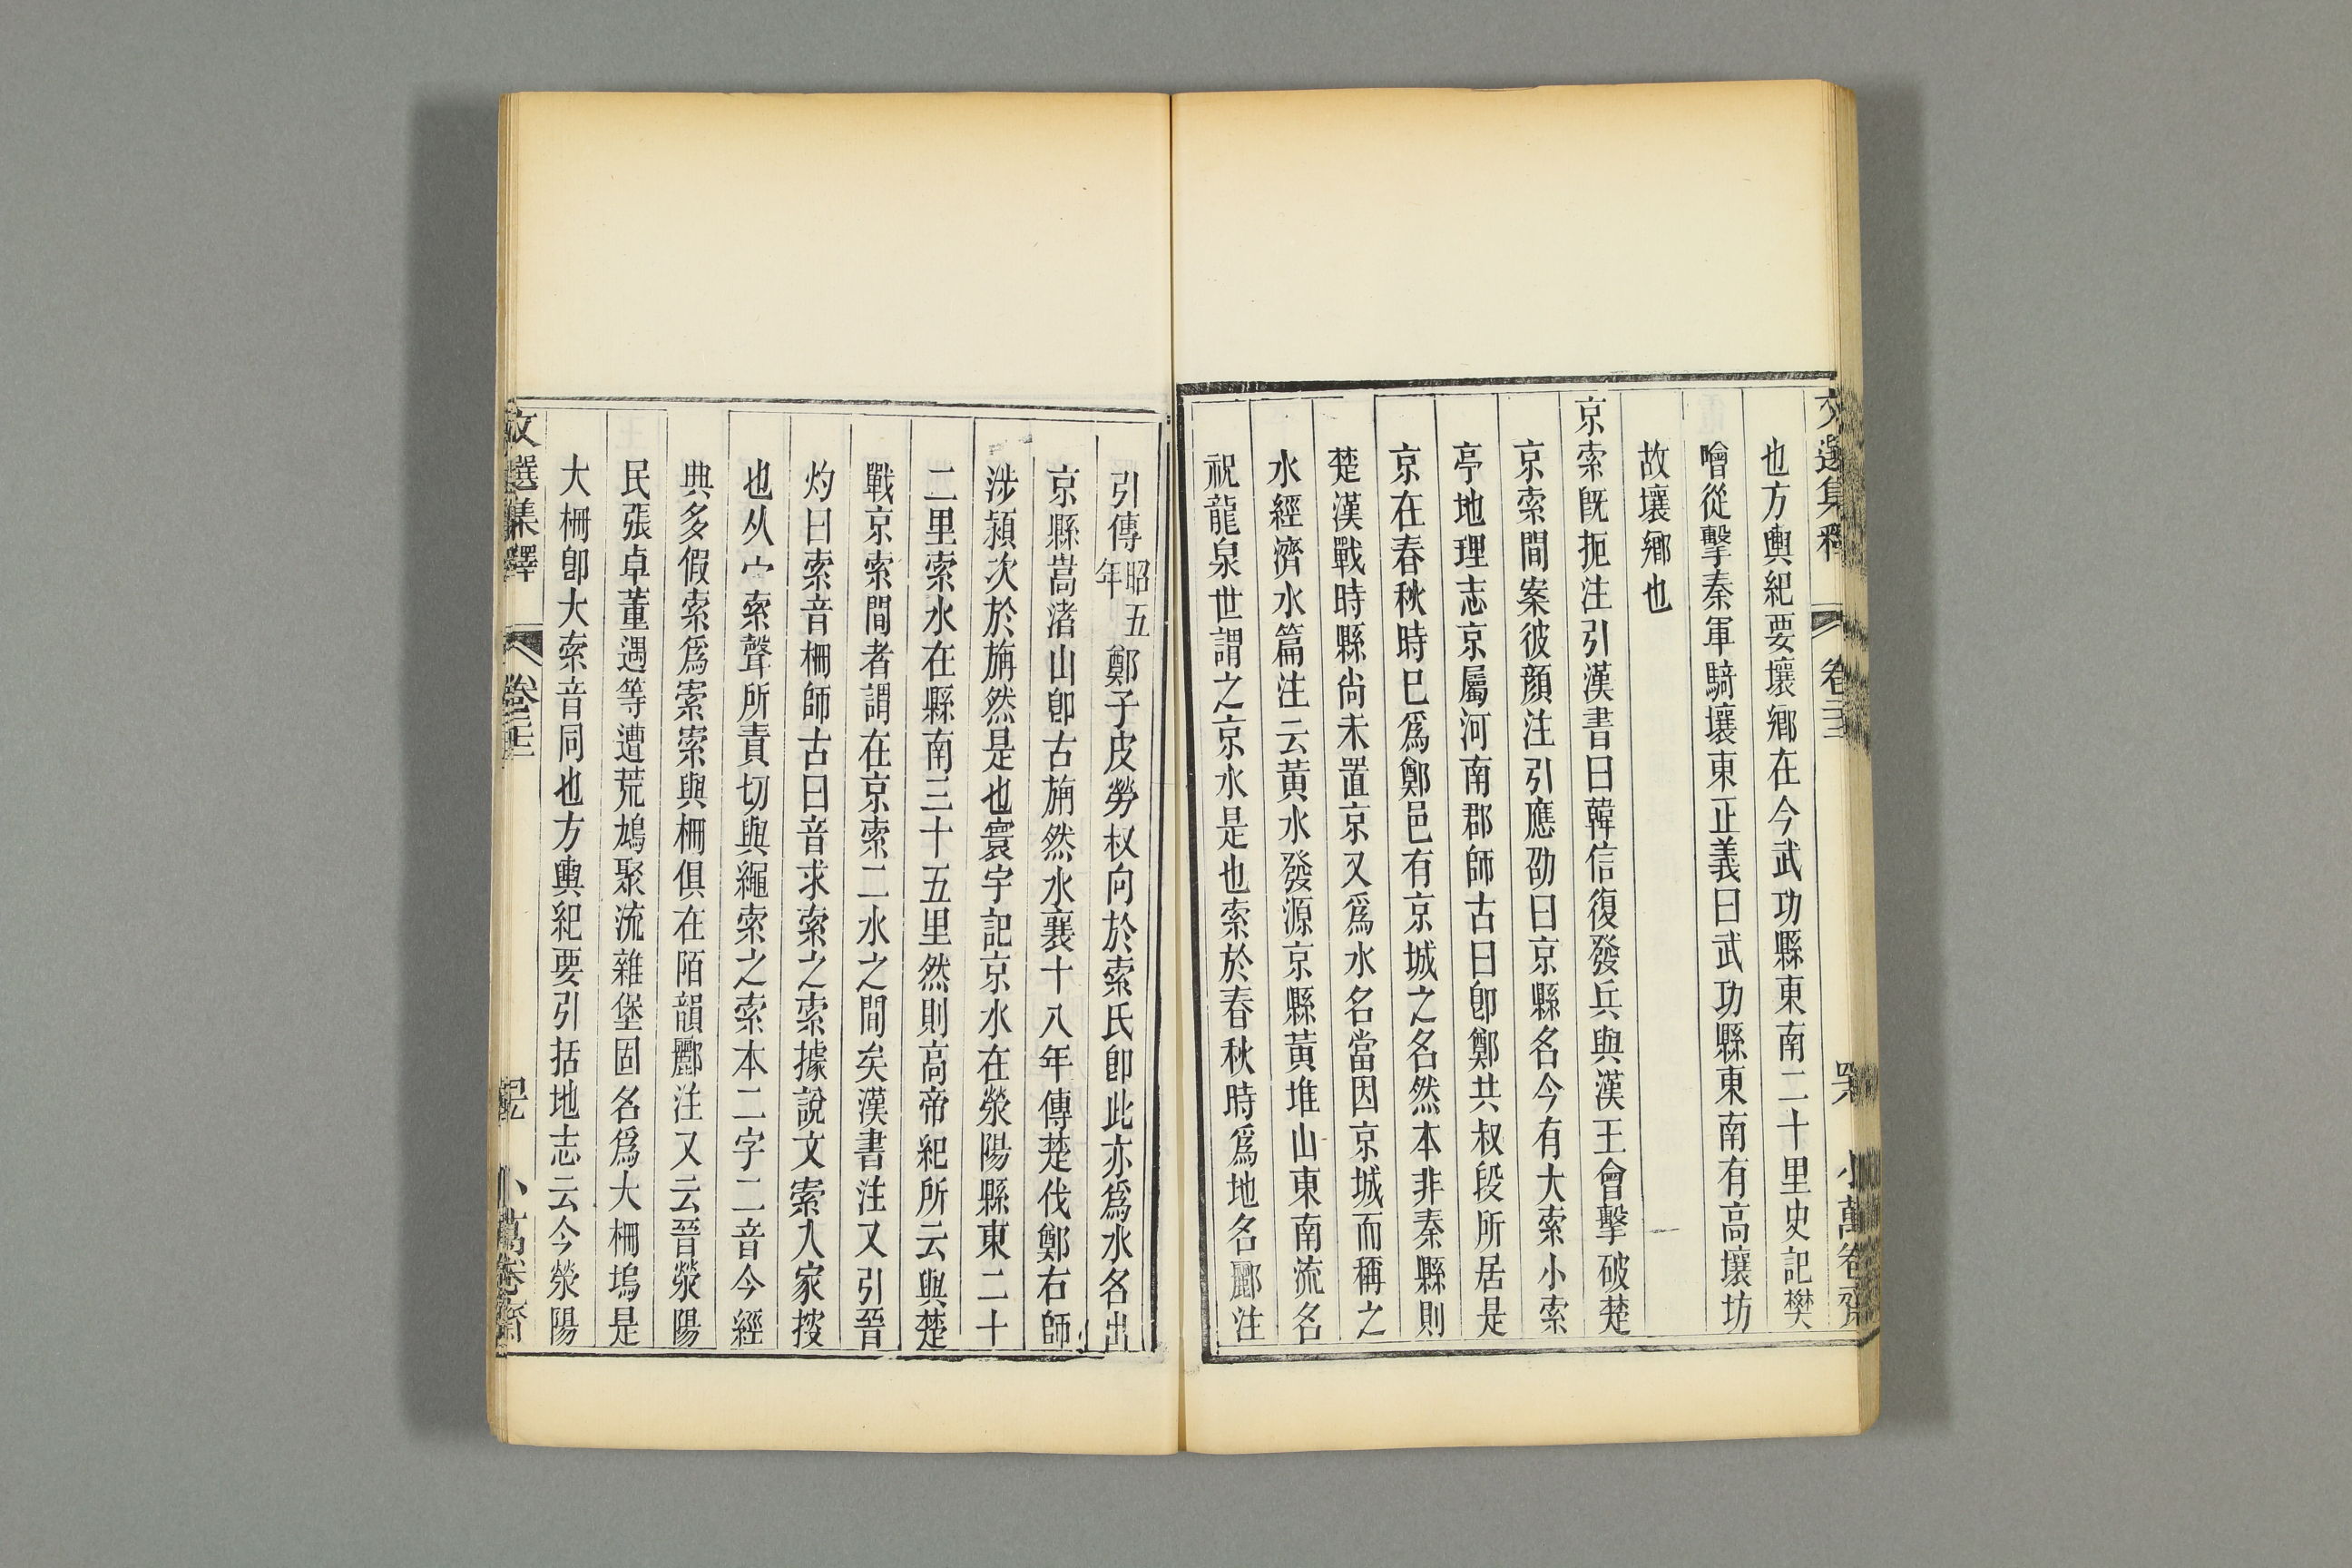 文選集釋 卷二十三 小萬卷齋
也方輿紀要壤鄉在今武功縣東南二十里史記樊
噲從擊秦軍騎壤東正義曰武功縣東南有高壤坊
故壤鄉也
京索既扼注引漢書曰韓信復發兵與漢王會擊破楚
京索間案彼顏注引應劭曰京縣名今有大索小索
亭地理志京屬河南郡師古曰卽鄭共叔段所居是
京在春秋時已爲鄭邑有京城之名然本非秦縣則
楚漢戰時縣尚未置京又爲水名當因京城而稱之
水經濟水篇注云黃水發源京縣黃堆山東南流名
祝龍泉世謂之京水是也索於春秋時爲地名酈注
引傳昭五年鄭子皮勞叔向於索氏卽此亦爲水名出
京縣嵩渚山卽古旃然水襄十八年傳楚伐鄭右師
涉潁次於旃然是也寰宇記京水在滎陽縣東二十
二里索水在縣南三十五里然則高帝紀所云與楚
戰京索間者謂在京索二水之間矣漢書注又引晉
灼曰索音柵師古曰音求索之索據說文索入家搜
也从宀索聲所責切與繩索之索本二字二音今經
典多假索爲索索與柵俱在陌韻酈注又云晉滎陽
民張卓董遇等遭荒鳩聚流雜堡固名爲大柵塢是
大柵卽大索音同也方輿紀要引括地志云今滎陽
文選集釋 卷二十三 小萬卷齋